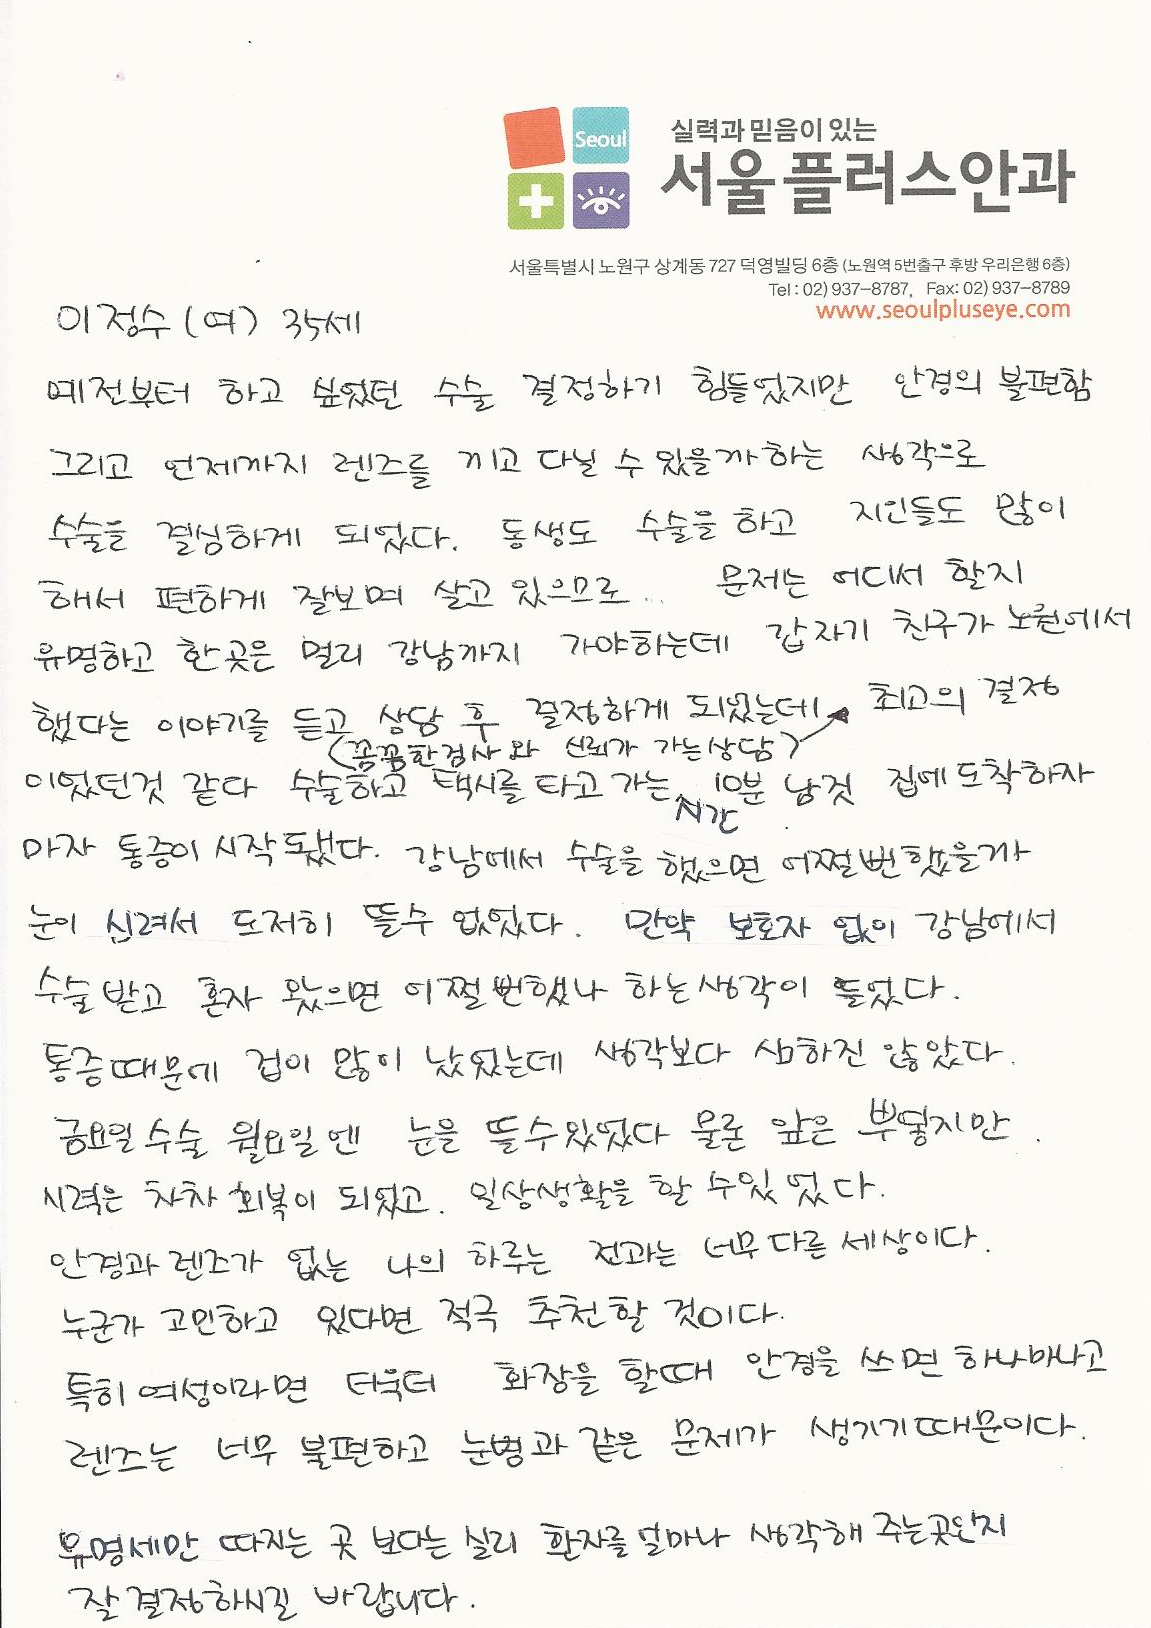 Seoul
실력과 믿음이 있는
서울플러스안과
서울특별시 노원구 상계동 727 덕영빌딩 6층 (노원역 5번출구 후방 우리은행 6층)
Tel : 02) 937-8787, Fax: 02) 937-8789
www.seoulpluseye.com
이정수 (여) 35세
예전부터 하고 싶었던 수술 결정하기 힘들었지만 안경의 불편함
그리고 언제까지 렌즈를 끼고 다닐 수 있을까하는 생각으로
수술을 결심하게 되었다. 동생도 수술을 하고 지인들도 많이
해서 편하게 잘보며 살고 있으므로... 문제는 어디서 할지
유명하고 한 곳은 멀리 강남까지 가야하는데 갑자기 친구가 노원에서
했다는 이야기를 듣고 상담 후 결정하게 되었는데 최고의 결정
(꼼꼼한검사와 신뢰가 가는상담)
이었던것 같다 수술하고 택시를 타고 가는 10분 남짓 집에 도착하자
시간
마자 통증이 시작됐다. 강남에서 수술을 했으면 어쩔뻔했을까
눈이 시려서 도저히 뜰수 없었다. 만약 보호자 없이 강남에서
수술 받고 혼자 왔으면 어쩔뻔했나 하는생각이 들었다.
통증때문에 겁이 많이 났었는데 생각보다 심하진 않았다.
금요일 수술 월요일엔 눈을 뜰수있었다 물론 앞은 뿌옇지만.
시력은 차차 회복이 되었고. 일상생활을 할 수있었다.
안경과 렌즈가 없는 나의 하루는 전과는 너무 다른 세상이다.
누군가 고민하고 있다면 적극 추천할 것이다.
특히 여성이라면 더욱더 화장을 할때 안경을 쓰면 하나마나고
렌즈는 너무 불편하고 눈병과 같은 문제가 생기기때문이다.
유명세만 따지는 곳 보다는 실리 환자를 얼마나 생각해 주는곳인지
잘 결정하시길 바랍니다.